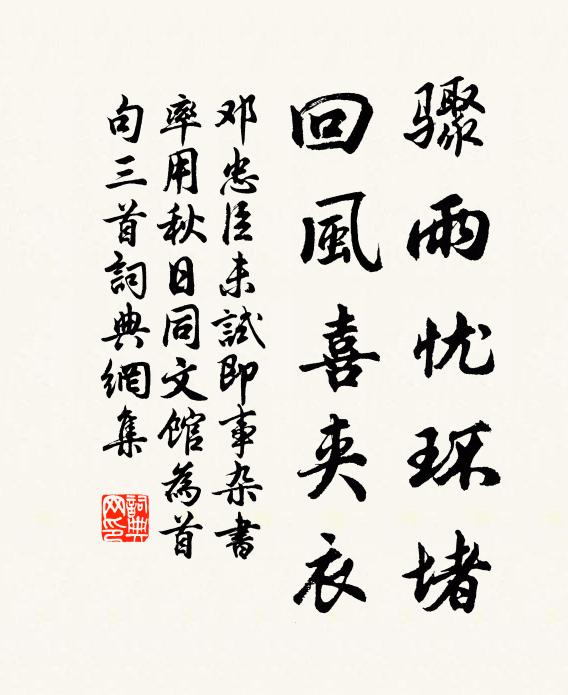 骤雨忧环堵
回風喜夹衣
邓忠臣未試即事杂書
率用秋日同文馆為首
句三首詞典網集
詞典
网印